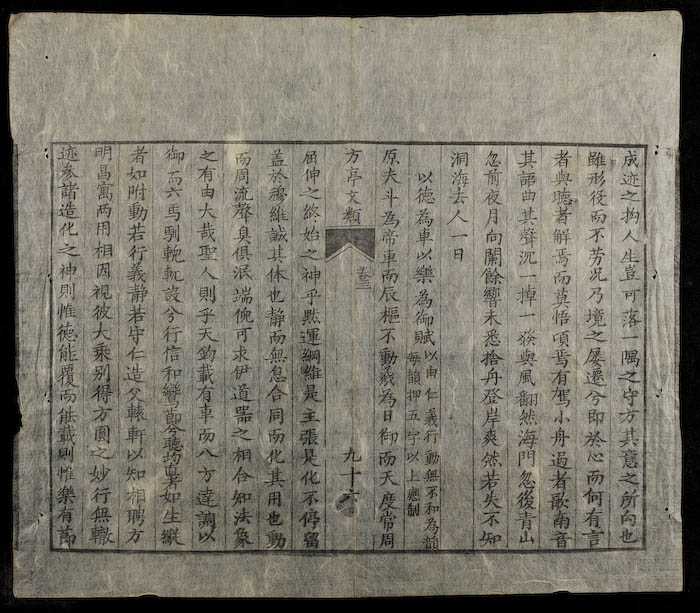 成迹之拘人生豈可落一隅之守方其意之所向也
雖形役而不劳况乃境之屡遷兮即於心而何有言
者與聴者解焉而莫悟頃焉有駕小舟過者歌南音
其謳曲其聲沉一掉一發與風翻然海門忽後青山
忽前夜月向闌餘響未悉捨舟登岸爽然若失不知
洞海去人一日
以德為車以樂為御賦以由仁義行動無不和為韻
每韻押五字以上應制
原夫斗為帝車而辰樞不動羲為日御而天度常周
方亭文類
卷三
九十六
屈伸之終始之神乎黙運綱維是主張是化不停留
盖於穆維誠其体也静而無息合同而化其用也動
而周流聲臭俱泯端倪可求伊道器之相合知法象
之有由大哉聖人則乎天鈞載有車而八方達調以
御而六馬馴軏軏設兮行信和鸞節兮聴均直者如生縱
者如附動若行義静若守仁造父轅軒以知相聘方
明昌寓两用相因視彼大乘别得方圓之妙行無轍
迹参諸造化之神則惟德能覆而能載則惟樂有節